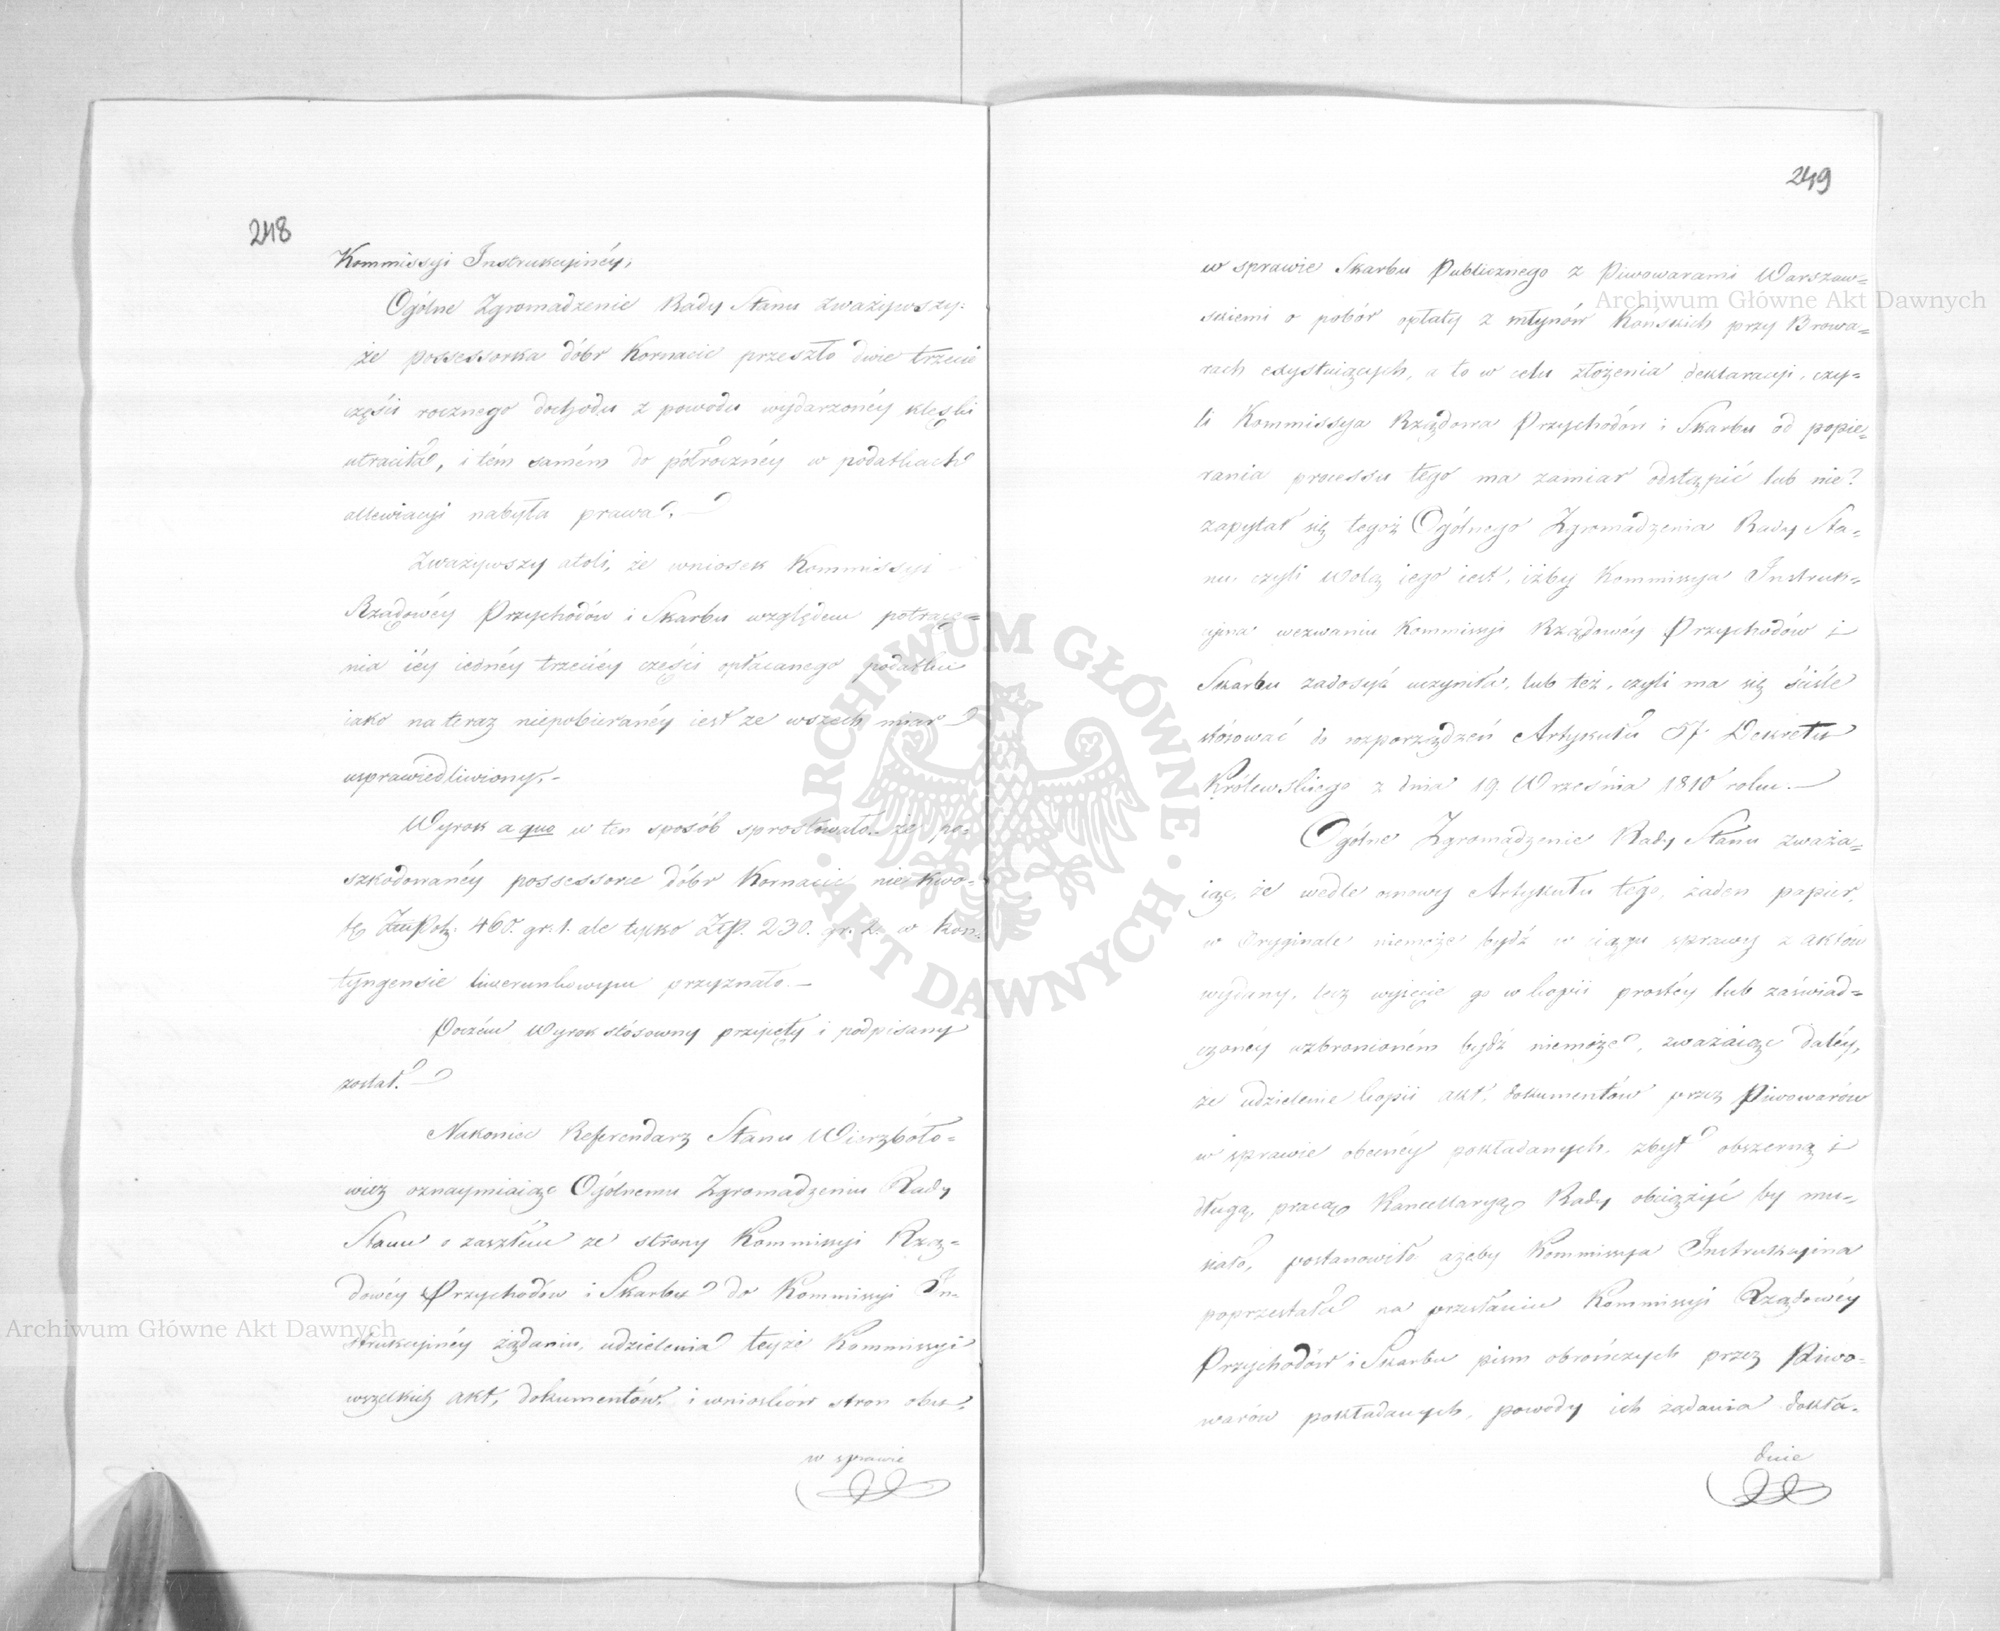 248
Kommissyi Instrukcyinéy,
Ogólne Zgromadzenie Rady Stanu zważywszy:
że possessorka dóbr Kornacic przeszło dwie trzecie
części rocznego dochodu z powodu wydarzonéy klęski
utraciła, i tém samém do półrocznéy w podatkach
allewiacyi nabyła prawa. —
Zważywszy atoli, że wniosek Kommissyi
Rządowéy Przychodów i Skarbu względem potrące=
nia iéy iednéy trzeciéy części opłacanego podatku
iako na teraz niepobieranéy iest ze wszech miar
usprawiedliwiony, —
Wyrok a quo w ten sposób sprostowało: że po=
szkodowanéy possessorce dóbr Kornacic nie kwo=
tę Złt Pol: 460. gr. 1. ale tylko Złp. 230. gr. 2. w kon=
tyngensie liwerunkowym przyznało. —
Poczém Wyrok stósowny przyięty i podpisany
został. —
Nakoniec Referendarz Stanu Wierzbóło=
wicz oznaymiaiąc Ogólnemu Zgromadzeniu Rady
Stanu o zaszłém ze strony Kommissyi Rzą=
dowéy Przychodów i Skarbu do Kommissyi In=
strukcyinéy żądaniu, udzielenia teyże Kommissyi
wszelkich akt, dokumentów, i wniosków stron obu,
w sprawie
249
w sprawie Skarbu Publicznego z Piwowarami Warszaw=
skiemi o pobór opłaty z młynów Końskich przy Browa=
rach exystuiących, a to w celu złożenia deklaracyi, czy=
li Kommissya Rządowa Przychodów i Skarbu od popie=
rania processu tego ma zamiar odstąpić lub nie?
zapytał się tegoż Ogólnego Zgromadzenia Rady Sta=
nu, czyli wolą iego iest, iżby Kommissya Instruk=
cyina wezwaniu Kommissyi Rządowéy Przychodów i
Skarbu zadosyć uczyniła, lub też, czyli ma się ściśle
stósować do rozporządzeń Artykułu 57 Dekretu
Królewskiego z dnia 19. Września 1810 roku. —
Ogólne Zgromadzenie Rady Stanu zważa=
iąc, że wedle osnowy Artykułu tego, żaden papier,
w Oryginale niemoże bydź w ciągu sprawy z aktów
wydany, lecz wyięcie go w kopii prostéy lub zaświad=
czonéy wzbronioném bydź niemoże, zważaiąc daléy,
że udzielenie kopii akt, dokumentów przez Piwowarów
w sprawie obecnéy pokładanych, zbyt obszerną i
długą, pracą Kancellaryą Rady obciążyć by mu=
siało, postanowiło ażeby Kommissya Instrukcyina
poprzestała na przesłaniu Kommissyi Rządowéy
Przychodów i Skarbu pism obrończych przez Piwo=
warów pokładanych, powody ich żądania dokła=
dnie
Archiwum Główne Akt Dawnych
Archiwum Główne Akt Dawnych
ARCHIWUM GŁÓWNE · AKT DAWNYCH ·